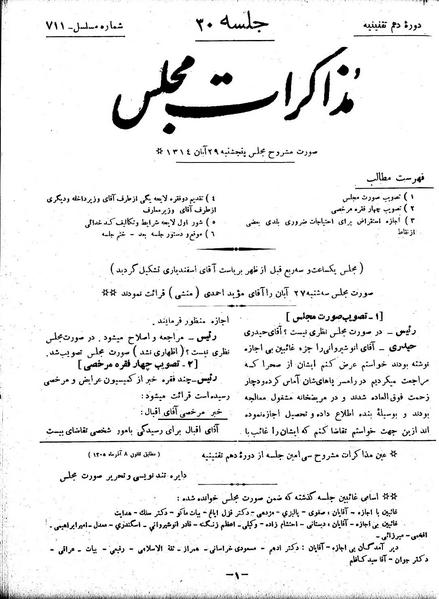 دورهٔ دهم تقنینیه
جلسه ۳۰
شماره مسلسل - ۷۱۱
مذاکرات مجلس
صورت مشروح مجلس پنجشنبه ۲۹ آبان ۱۳۱۴ *
فهرست مطالب
۱) تصویب صورت مجلس
۲) تصویب چهار فقره مرخصی
۳) اجازه استقراض برای احتیاجات ضروری بلدی بعضی
از نقاط
۴) تقدیم دو فقره لایحه یکی از طرف آقای وزیر داخله و دیگری
از طرف آقای وزیر معارف
۵) شور اول لایحه شرایط و تکالیف کدخدائی
۶) موقع و دستور جلسه بعد - ختم جلسه
(مجلس یکساعت و سه ربع قبل از ظهر بریاست آقای اسفندیاری تشکیل گردید)
صورت مجلس سه شنبه ۲۷ آبان را آقای مؤید احمدی (منشی) قرائت نمودند **
[۱ - تصویب صورت مجلس]
رئیس - در صورت مجلس نظری نیست؟ آقای حیدری
حیدری - آقای انوشیروانی را جزء غائبین بی اجازه
نوشته بودند خواستم عرض کنم ایشان از صحرا که
مراجعت میکردیم در رامسر پاهای‌شان آماس کرده و دچار
زحمت فوق‌العاده شدند و در مریضخانه مشغول معالجه
بودند و بوسیلهٔ بنده اطلاع داده و تحصیل اجازه نموده
اند از این جهت خواستم تقاضا کنم که ایشان را غائب با
اجازه منظور فرمایند.
رئیس - مراجعه و اصلاح میشود. در صورت مجلس
نظری نیست؟ (اظهاری نشد) صورت مجلس تصویب شد.
[۲ - تصویب چهار فقره مرخصی]
رئیس - چند فقره خبر از کمیسیون عرایض و مرخصی
رسیده است قرائت میشود:
خبر مرخصی آقای اقبال:
آقای اقبال برای رسیدگی بامور شخصی تقاضای بیست
* عین مذاکرات مشروح سی امین جلسه از دورهٔ دهم تقنینیه
(مطابق قانون ۸ آذر ماه ۱۳۰۵)
دایره تند نویسی و تحریر صورت مجلس
** اسامی غائبین جلسه گذشته که ضمن صورت مجلس خوانده شده:
غائبین با اجازه - آقایان: صفوی - پالیزی - مژدهی - دکتر قزل ایاغ - بیات ماکو - دکتر سنگ - هدایت
غائبین بی اجازه - آقایان: دبستانی - احتشام زاده - وکیلی - اعظم زنگنه - نادر انوشیروانی - اسکندری - معدل - امیر ابراهیمی -
افخمی - میرزائی -
دیر آمدگان بی اجازه - آقایان: دکتر ادهم - مسعودی خراسانی - همراز - ثقة الاسلامی - رفیعی - بیات - عراقی -
دکتر جوان - آقا سید کاظم
-۱-